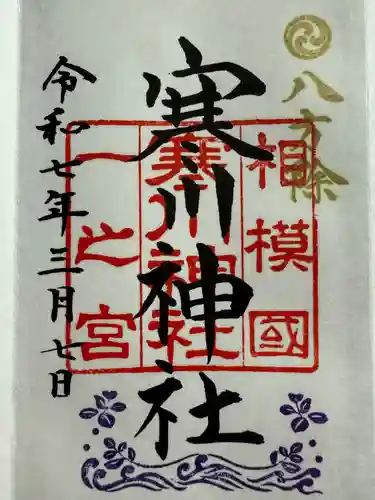 八方除
相模國
寒川神社
一之宮
寒川神社
令和七年三月七日